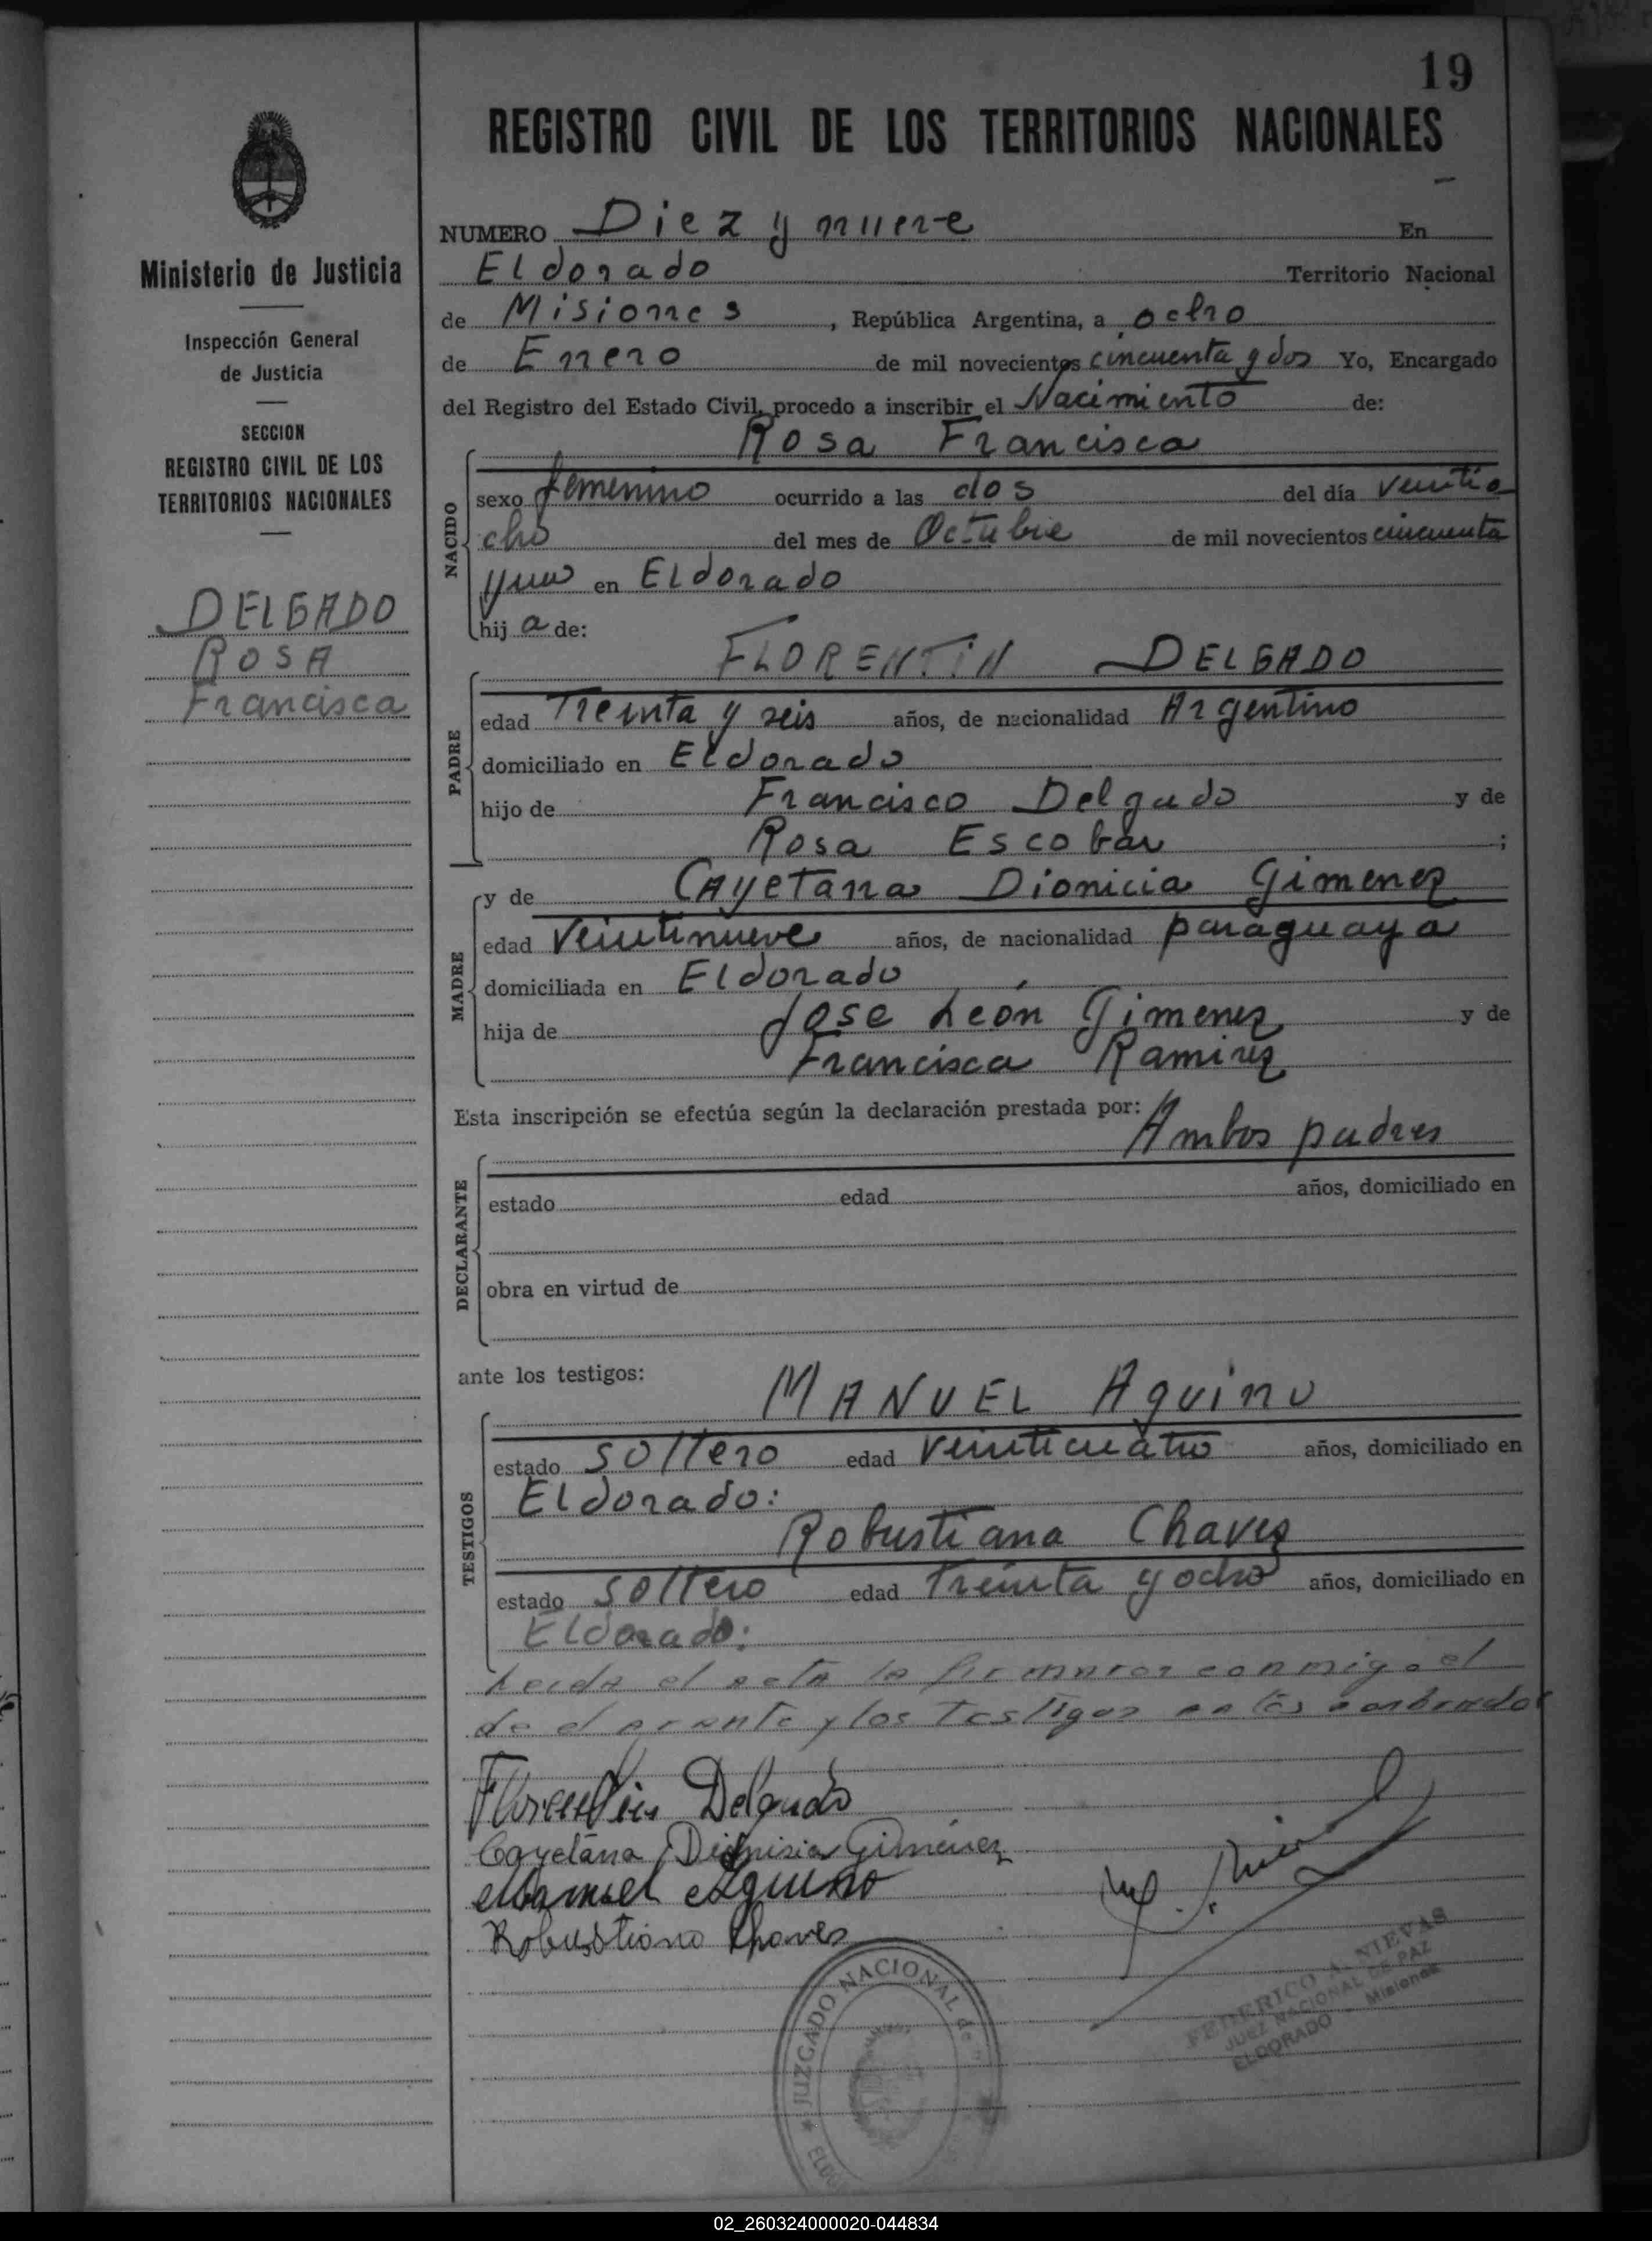 19
REGISTRO CIVIL DE LOS TERRITORIOS NACIONALES
Ministerio de Justicia
Inspección General
de Justicia
SECCION
REGISTRO CIVIL DE LOS
TERRITORIOS NACIONALES
DELGADO
ROSA
Francisca
NUMERO Diez y nueve En
Eldorado Territorio Nacional
de Misiones, República Argentina, a ocho
de Enero de mil novecientos cincuenta y dos Yo, Encargado
del Registro del Estado Civil, procedo a inscribir el Nacimiento de:
Rosa Francisca
NACIDO
sexo femenino ocurrido a las dos del día veintio
cho del mes de Octubre de mil novecientos cincuenta
y uno en Eldorado
hij a de:
FLORENTIN DELGADO
PADRE
edad Treinta y seis años, de nacionalidad Argentino
domiciliado en Eldorado
hijo de Francisco Delgado y de
Rosa Escobar ;
y de Cayetana Dionicia Gimenez
MADRE
edad Veintinueve años, de nacionalidad paraguaya
domiciliada en Eldorado
hija de Jose León Gimenez y de
Francisca Ramirez
Esta inscripción se efectúa según la declaración prestada por:
Ambos padres
DECLARANTE
estado edad años, domiciliado en
obra en virtud de
ante los testigos:
MANUEL Aquino
TESTIGOS
estado soltero edad veinticuatro años, domiciliado en
Eldorado:
Robustiana Chavez
estado soltero edad treinta y ocho años, domiciliado en
Eldorado:
Leida el acta la firmaron conmigo el
declarante y los testigos
Florentin Delgado
Cayetana Dionisia Gimenez
Manuel Aquino
Robustiano Chaves
JUZGADO NACIONAL de
FEDERICO A. NIEVAS
JUEZ NACIONAL DE PAZ
ELDORADO - Misiones
02_260324000020-044834